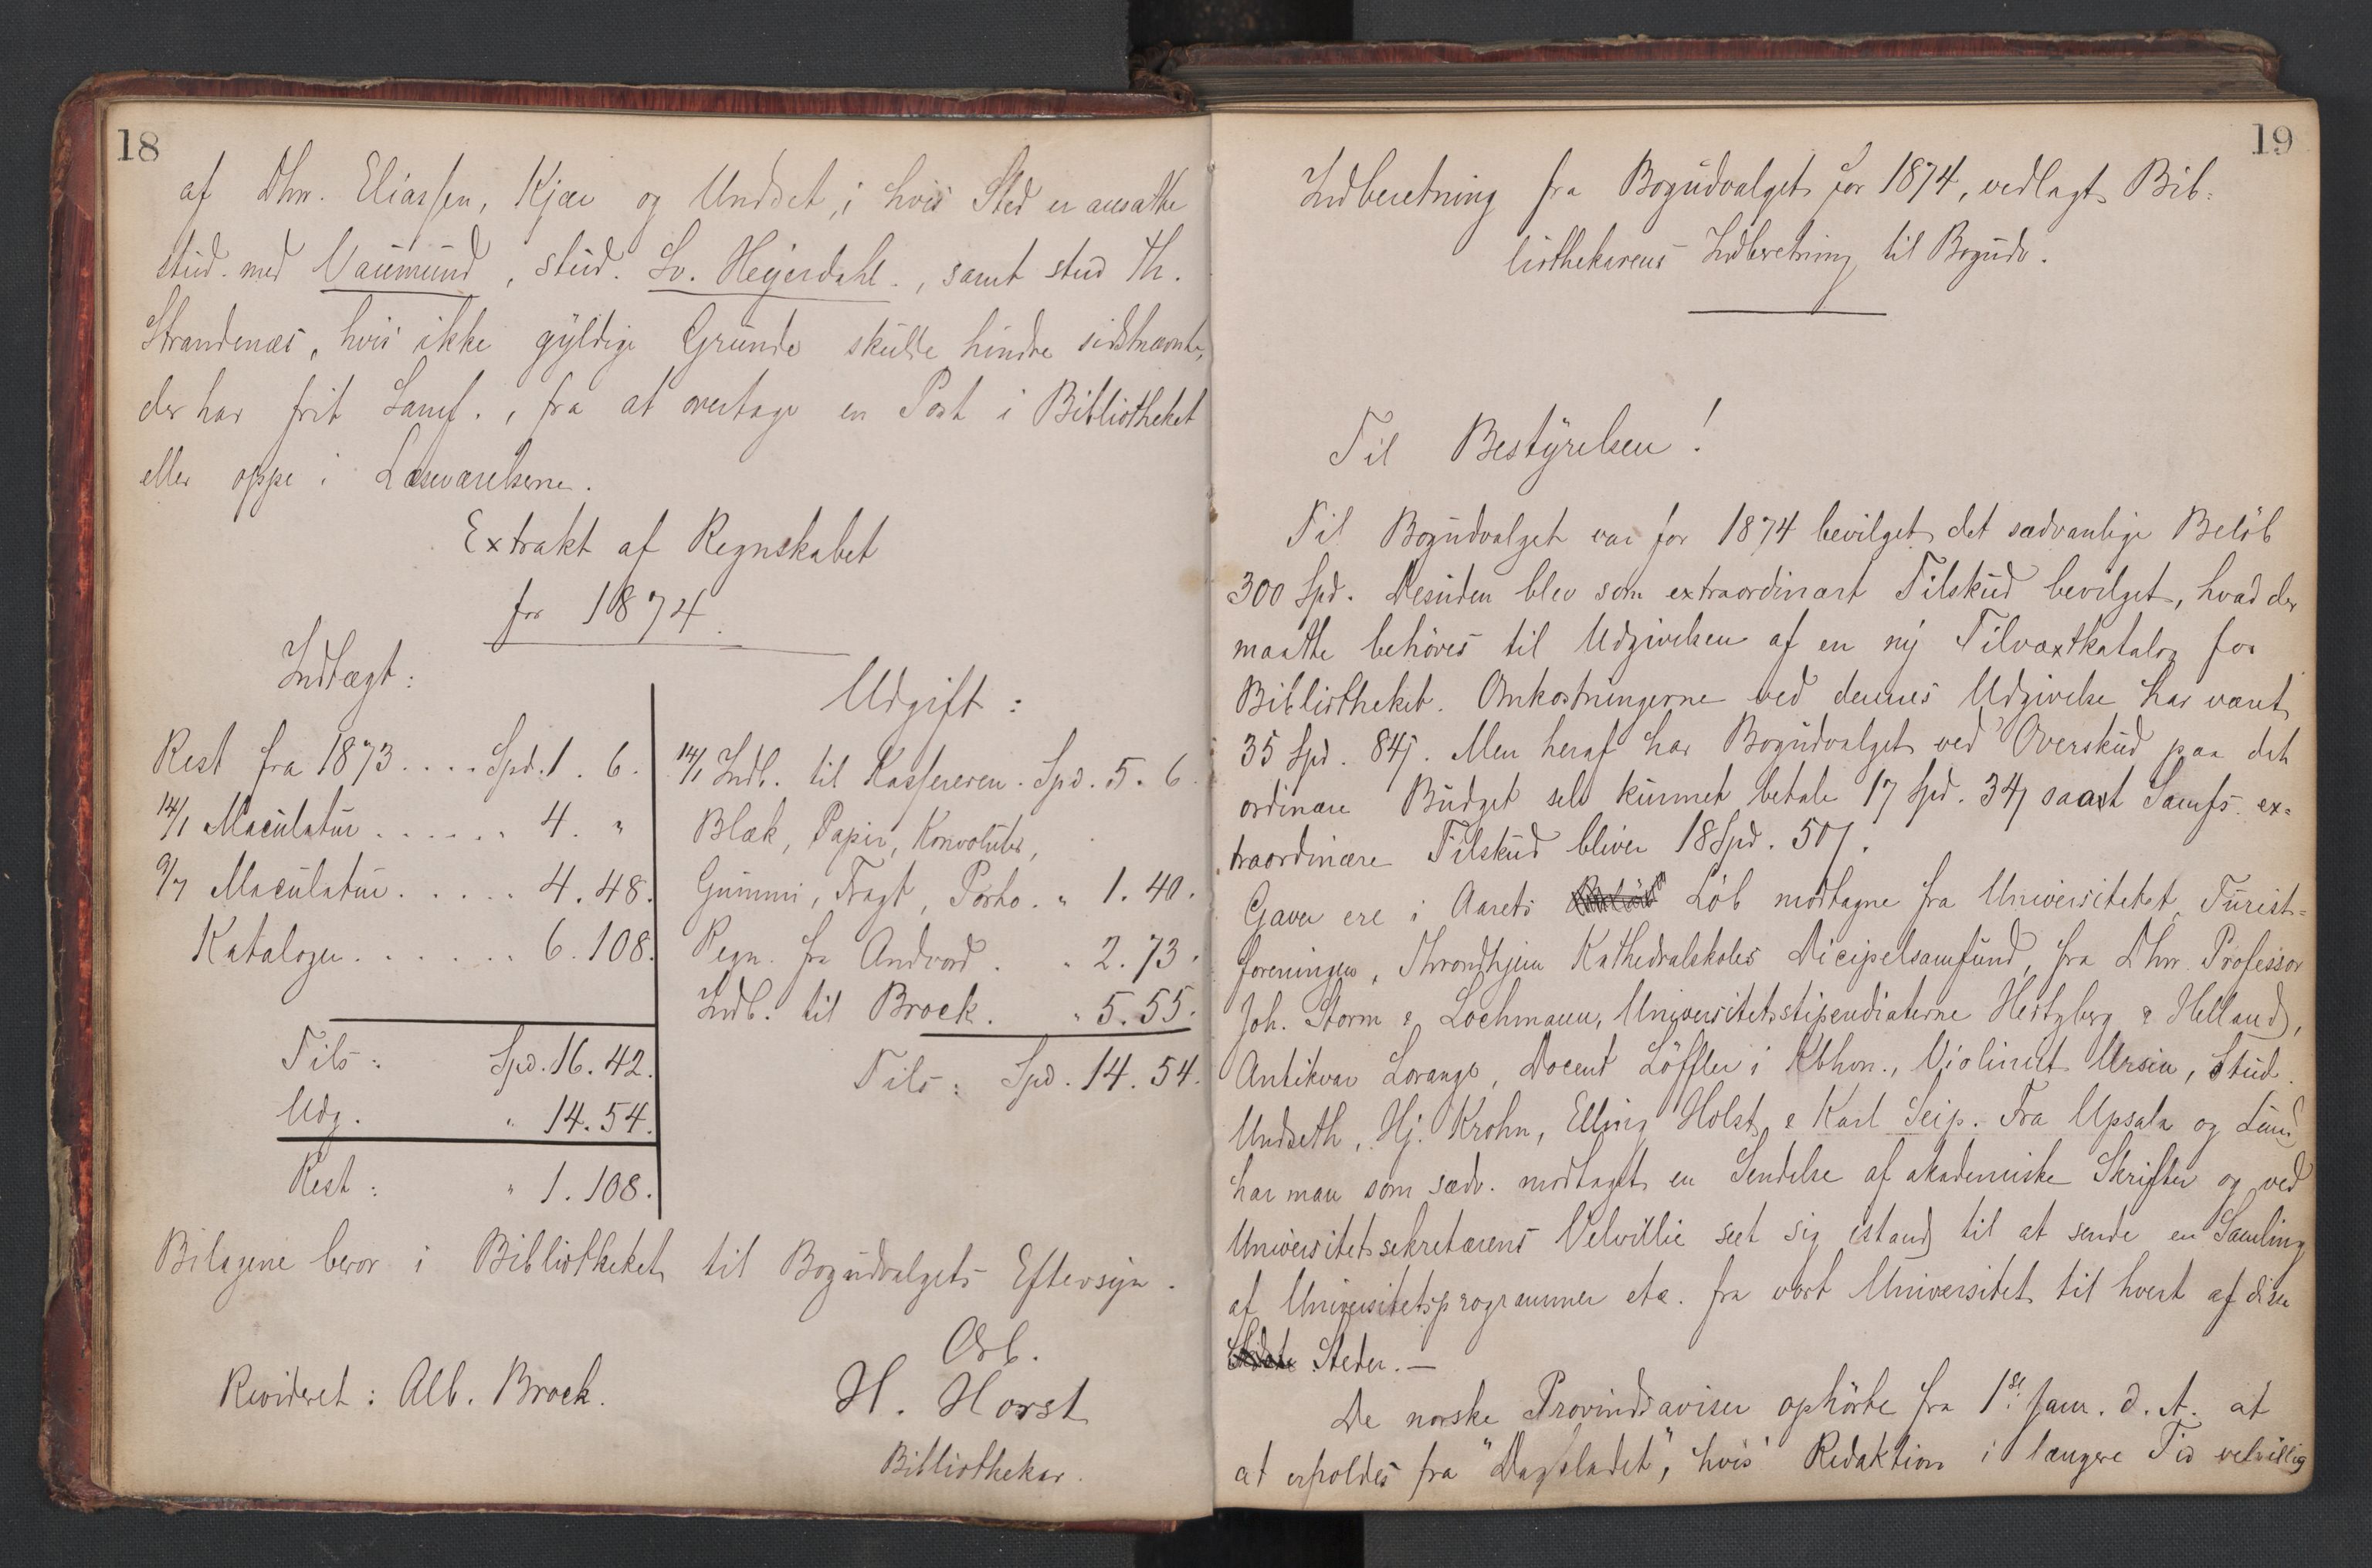 18
af Dhrr. Eliassen, Kjær og Undset, i hvis Sted er ansatte
stud. med Vaumund, stud. Sv. Heyerdahl., samt stud Th.
Strandenæs, hvis ikke gyldige Grunde skulde hindre sidstnævnte,
der har frit Samf., fra at overtage en Post i Bibliotheket
eller oppe i Læseværelserne.
Extrakt af Regnskabet
for 1874.
Indtægt:
Rest fra 1873 .... Spd. 1. 6.
14/1 Maculatur ...... 4. "
9/7 Maculatur ..... 4. 48.
Kataloger ...... 6. 108.
Tils: Spd. 16. 42.
Udg. " 14. 54.
Rest: " 1. 108.
Udgift:
14/1 Indb. til Kassereren. Spd. 5. 6.
Blæk, Papir, Konvoluter,
Gummi, Fragt, Porto. " 1. 40.
Regn. fra Andvord. " 2. 73.
Indb. til Brock. " 5. 55.
Tils: Spd. 14. 54.
Bilagene beror i Bibliotheket til Bogudvalgets Eftersyn.
Ærb.
Revideret: Alb. Brock.
H. Horst
Bibliothekar.
19
Indberetning fra Bogudvalget for 1874, vedlagt Bib-
liothekarens Indberetning til Bogudv.
Til Bestyrelsen!
Til Bogudvalget var for 1874 bevilget det sædvanlige Beløb
300 Spd. Desuden blev som extraordinært Tilskud bevilget, hvad der
maatte behøves til Udgivelsen af en ny Tilvæxtkatalog for
Bibliotheket. Omkostningerne ved dennes Udgivelse har været
35 Spd. 84 β. Men heraf har Bogudvalget ved Overskud paa det
ordinære Budget selv kunnet betale 17 Spd. 34 β saa at Samfs. ex-
traordinære Tilskud bliver 18 Spd. 50 β.
Gaver ere i Aarets Løb modtagne fra Universitetet, Turist-
foreningen, Throndhjem Kathedralskoles Dicipelsamfund, fra Dhrr. Professor
Joh. Storm & Lochmann, Universitetsstipendiaterne Hertzberg & Helland,
Antikvar Lorange, Docent Löffler i Kbhvn., Violinist Ursin, Stud.
Undseth, Hj. Krohn, Elling Holst & Karl Seip. Fra Upsala og Lund
har man som sædv. modtaget en Sendelse af akademiske Skrifter og ved
Universitetssekretærens Velvillie seet sig istand til at sende en Samling
af Universitetsprogrammer etc. fra vort Universitet til hvert af disse
Steder. —
De norske Provindsaviser ophørte fra 1ste Janu. d. A. at
at erholdes fra "Dagbladet", hvis Redaktion i længere Tid velvillig